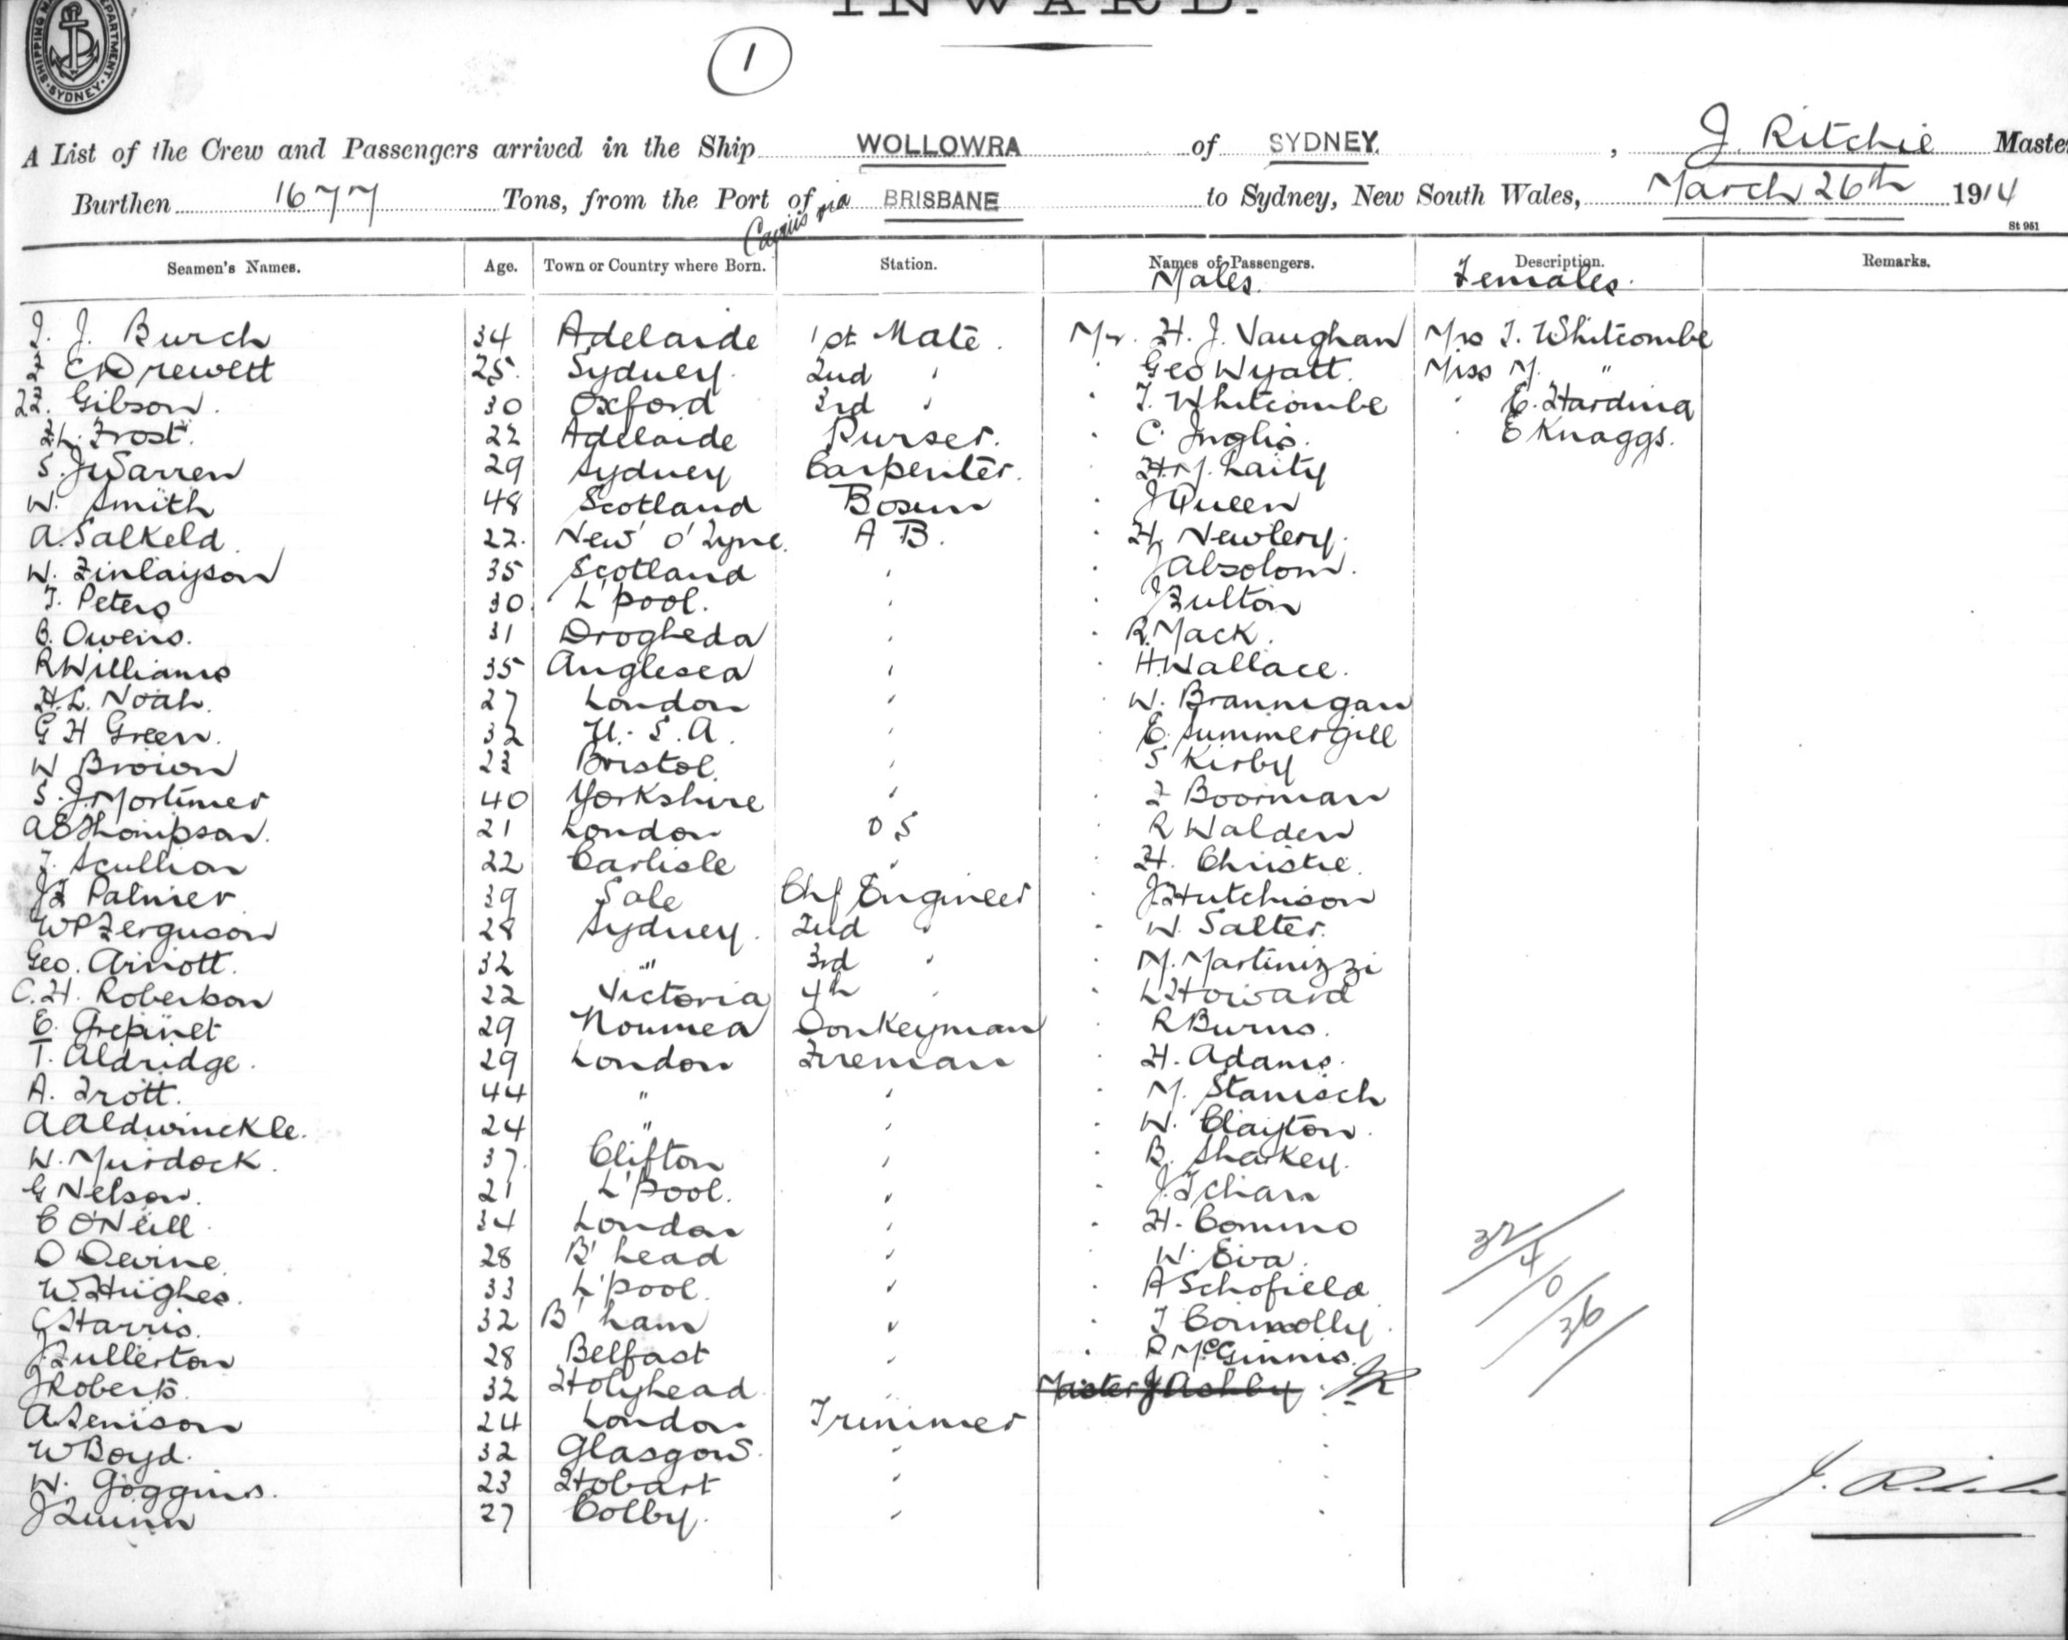 INWARD.
SHIPPING MASTER'S DEPARTMENT. SYDNEY
1
A List of the Crew and Passengers arrived in the Ship WOLLOWRA of SYDNEY. , J. Ritchie Master
Burthen 1677 Tons, from the Port of Cairns via BRISBANE to Sydney, New South Wales, March 26th 1914
St 951
Seamen's Names. Age. Town or Country where Born. Station. Names of Passengers. Description. Remarks.
Males. Females.
J. J. Burch 34 Adelaide 1st Mate. Mr. H. J. Vaughan Mrs T. Whitcombe
E Drewett 25. Sydney. 2nd " Geo Wyatt. Miss M. "
Gibson. 30 Oxford 3rd " T. Whitcombe " E. Harding
F.L. Frost. 22 Adelaide Purser. C. Inglis. " E Knaggs.
S. J Warren 29 Sydney Carpenter. H.M. Laity
W. Smith 48 Scotland Bosun J Queen
A. Salkeld. 22. New' o' Tyne. A B. H. Newlery.
W. Finlayson 35 Scotland " J Absolom.
T. Peters 30. L'pool. " J Fulton
B. Owens. 31 Drogheda " R. Mack.
R Williams 35 Anglesea " H Wallace.
H. L. Noah. 27 London " W. Brannigan
G H Green. 32 U. S. A. " E. Summergill
W Brown 23 Bristol. " S Kirby
S. J. Mortimer 40 Yorkshire " F Boorman
A E Thompson. 21 London O S R Walden
T. Scullion 22 Carlisle " H. Christie.
J F Palmer 39 Sale Chf Engineer J Hutchison
W P Ferguson 28 Sydney. 2nd " W. Salter.
Geo. Arnott. 32 " 3rd " M. Martinizzi
C. H. Robertson 22 Victoria 4th " L Howard
E. Grepinet 29 Noumea Donkeyman R Burns.
T. Aldridge. 29 London Fireman H. Adams.
A. Trott. 44 " " M. Stanisch
A Aldwinckle. 24 " " W. Clayton.
W. Murdock. 37. Clifton " B. Sharkey.
G Nelson. 21 L'pool. " J. Tchan
C O'Neill 34 London " H. Comino
D Devine. 28 B'head " W. Eva.
W. Hughes. 33 L'pool. " A Schofield
C Harris. 32 B'ham " T Connolly.
J. Fullerton 28 Belfast " R McGinnis.
J Roberts. 32 Holyhead " Master J Ashby. JR
A Jenison 24 London Trimmer
W Boyd. 32 Glasgow. "
W. Goggins. 23 Hobart "
J Quinn 27 Colby. "
32/4/0/36
J. Ritchie